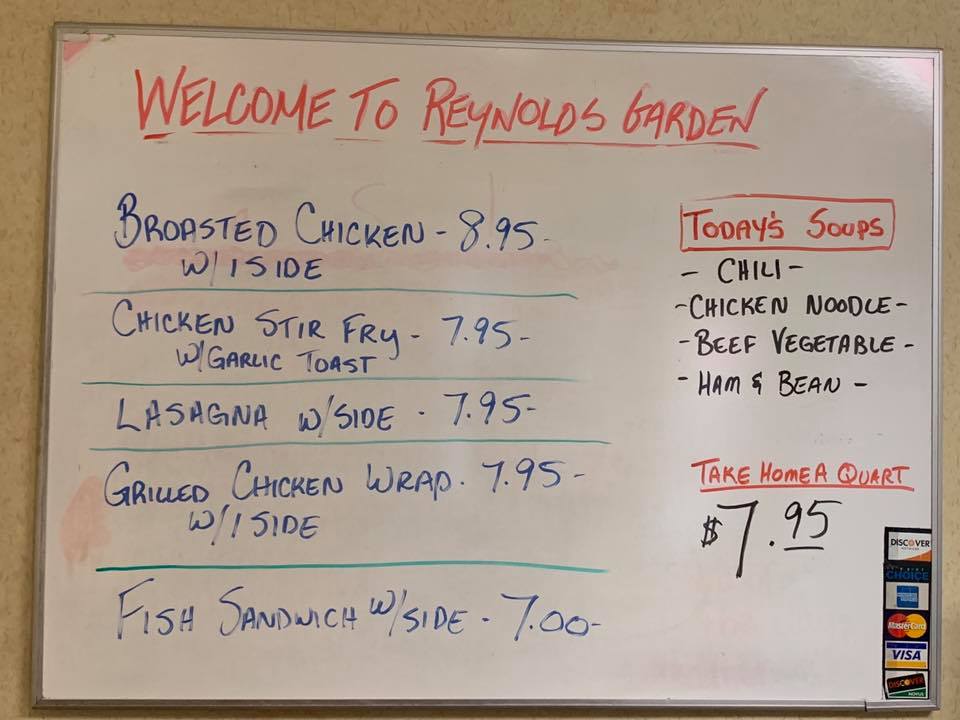 WELCOME TO REYNOLDS GARDEN
BROASTED CHICKEN - 8.95-
W/ 1 SIDE
CHICKEN STIR FRY - 7.95-
W/GARLIC TOAST
LASAGNA W/SIDE - 7.95-
GRILLED CHICKEN WRAP - 7.95-
W/1 SIDE
FISH SANDWICH W/SIDE - 7.00-
TODAY'S SOUPS
- CHILI -
- CHICKEN NOODLE -
- BEEF VEGETABLE -
- HAM & BEAN -
TAKE HOME A QUART
$7.95
DISCOVER
NETWORK
CHOICE
MasterCard
VISA
DISCOVER
NOVUS